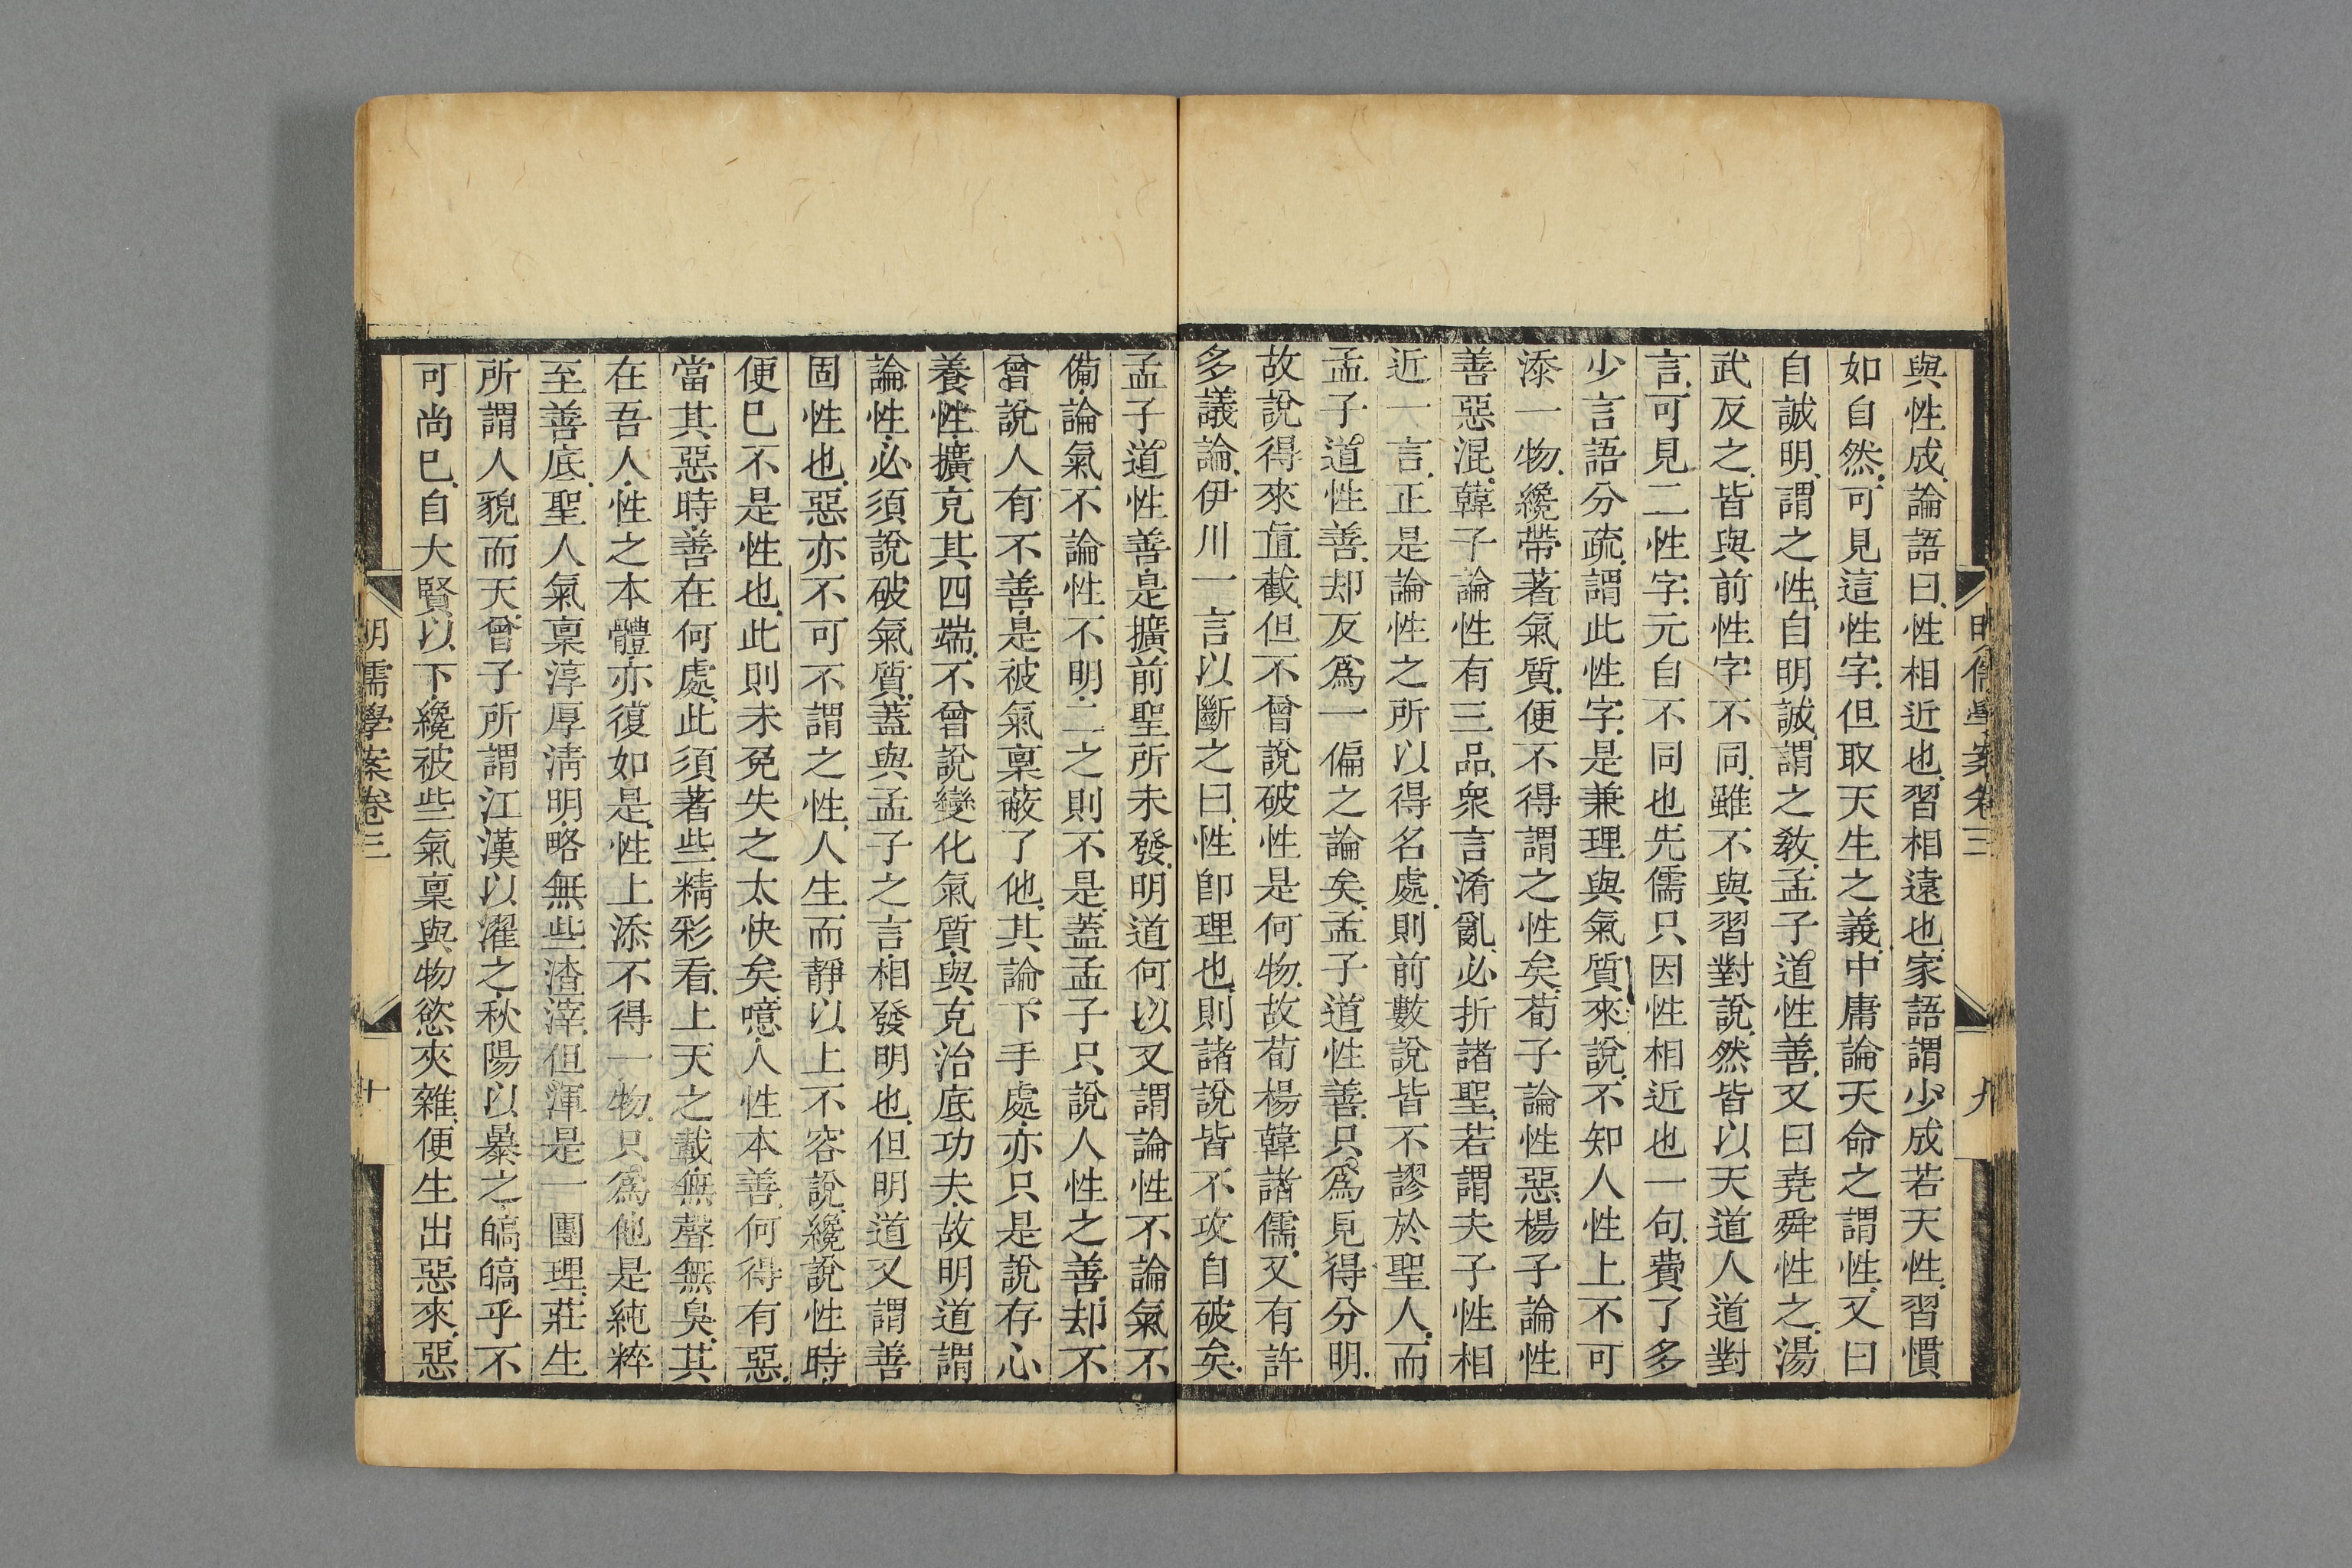 與性成、論語曰、性相近也、習相遠也、家語謂少成若天性、習慣
如自然、可見這性字、但取天生之義、中庸論天命之謂性、又曰
自誠明、謂之性、自明誠、謂之教、孟子道性善、又曰堯舜性之、湯
武反之、皆與前性字不同、雖不與習對說、然皆以天道人道對
言、可見二性字、元自不同也、先儒只因性相近也一句、費了多
少言語分疏、謂此性字、是兼理與氣質來說、不知人性上不可
添一物、纔帶著氣質、便不得謂之性矣、荀子論性惡、楊子論性
善惡混、韓子論性有三品、衆言淆亂、必折諸聖、若謂夫子性相
近一言、正是論性之所以得名處、則前數說皆不謬於聖人、而
孟子道性善、却反爲一偏之論矣、孟子道性善、只爲見得分明、
故說得來直截、但不曾說破性是何物、故荀楊韓諸儒、又有許
多議論、伊川一言以斷之曰、性卽理也、則諸說皆不攻自破矣、
孟子道性善、是擴前聖所未發、明道何以又謂論性不論氣不
備、論氣不論性不明、二之則不是、蓋孟子只說人性之善、却不
曾說人有不善、是被氣稟蔽了他、其論下手處、亦只是說存心
養性、擴充其四端、不曾說變化氣質、與克治底功夫、故明道謂
論性、必須說破氣質、蓋與孟子之言、相發明也、但明道又謂善
固性也、惡亦不可不謂之性、人生而靜以上不容說、纔說性時、
便已不是性也、此則未免失之太快矣、噫、人性本善、何得有惡、
當其惡時、善在何處、此須著些精彩看、上天之載、無聲無臭、其
在吾人、性之本體、亦復如是、性上添不得一物、只爲他是純粹
至善底、聖人氣稟淳厚淸明、略無些渣滓、但渾是一團理、莊生
所謂人貌而天、曾子所謂江漢以濯之、秋陽以暴之、皜皜乎不
可尚已、自大賢以下、纔被些氣稟與物慾夾雜、便生出惡來、惡
明儒學案卷三
九
明儒學案卷三
十